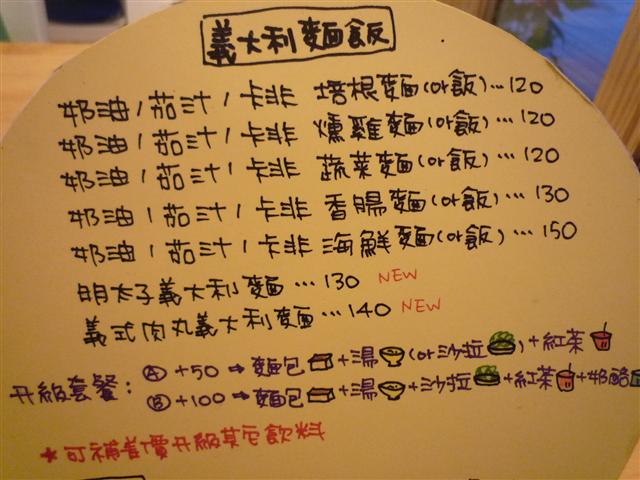 義大利麵飯
奶油/茄汁/卡非 培根麵(or飯)...120
奶油/茄汁/卡非 燻雞麵(or飯)...120
奶油/茄汁/卡非 蔬菜麵(or飯)...120
奶油/茄汁/卡非 香腸麵(or飯)...130
奶油/茄汁/卡非 海鮮麵(or飯)...150
明太子義大利麵...130 NEW
義式肉丸義大利麵...140 NEW
升級套餐: Ⓐ +50 ⇒ 麵包+湯(or沙拉)+紅茶
Ⓑ +100 ⇒ 麵包+湯+沙拉+紅茶+奶酪
*可補差價升級其它飲料